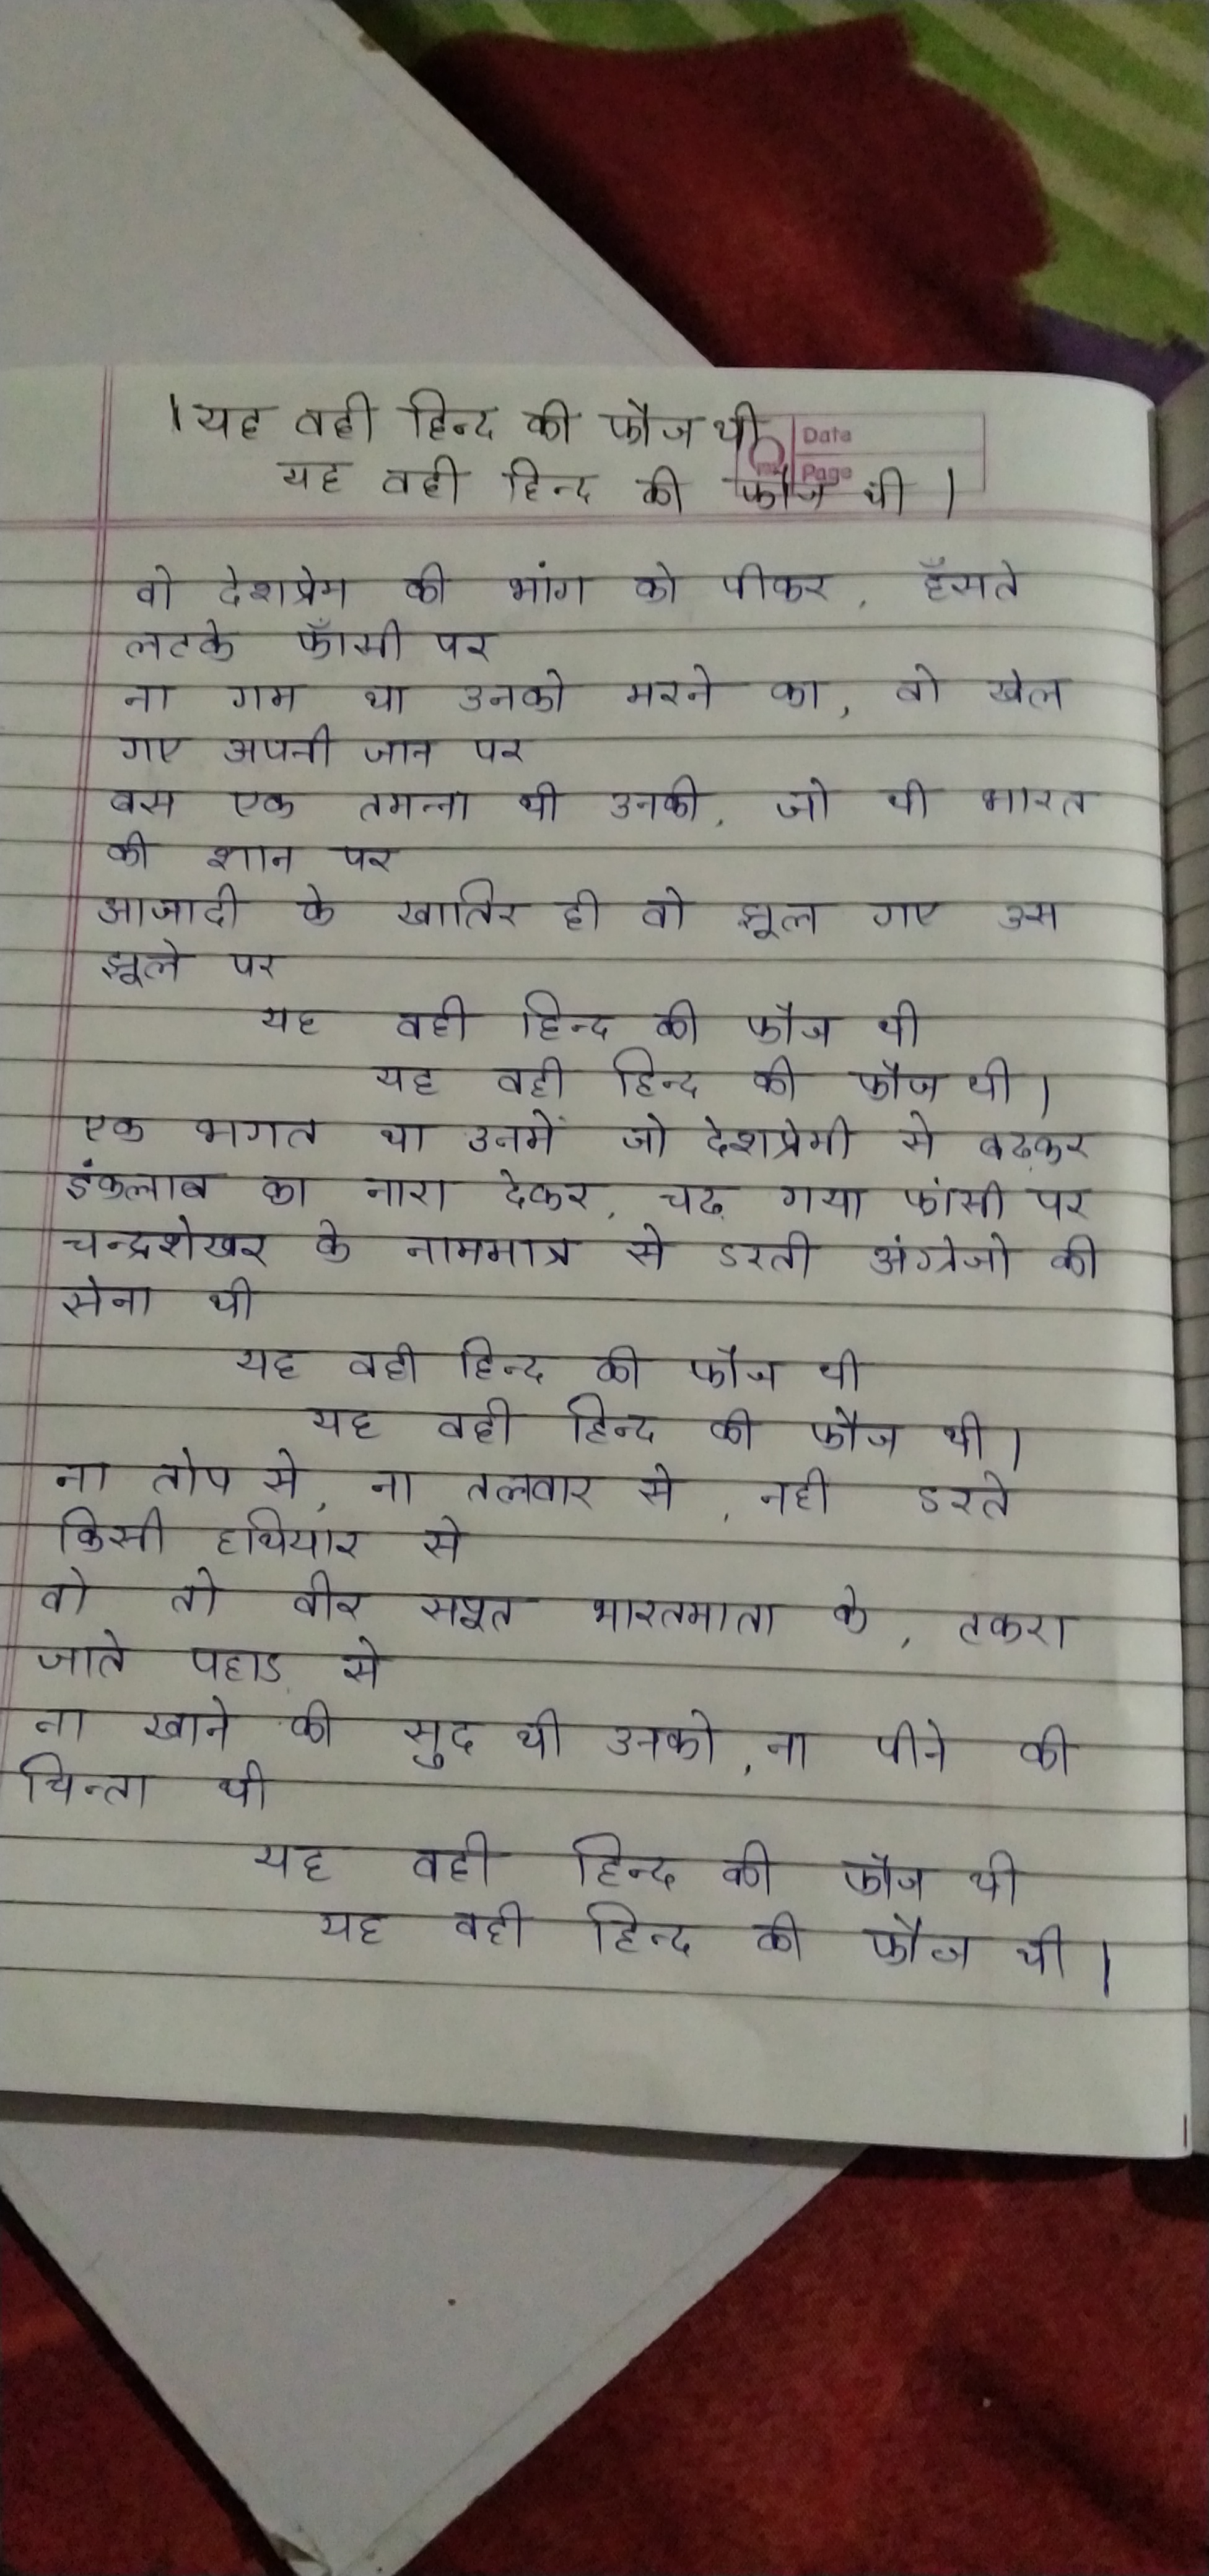 । यह वही हिन्द की फौज थी
Date
यह वही हिन्द की फौज थी ।
Page
वो देशप्रेम की भांग को पीकर, हँसते
लटके फाँसी पर
ना गम था उनको मरने का, वो खेल
गए अपनी जान पर
बस एक तमन्ना थी उनकी, जो थी भारत
की शान पर
आजादी के खातिर ही वो झूल गए उस
झूले पर
यह वही हिन्द की फौज थी
यह वही हिन्द की फौज थी ।
एक भगत था उनमें जो देशप्रेमी से बढ़कर
इंकलाब का नारा देकर, चढ़ गया फांसी पर
चन्द्रशेखर के नाममात्र से डरती अंग्रेजो की
सेना थी
यह वही हिन्द की फौज थी
यह वही हिन्द की फौज थी ।
ना तोप से, ना तलवार से, नही डरते
किसी हथियार से
वो तो वीर सपूत भारतमाता के, टकरा
जाते पहाड़ से
ना खाने की सुद थी उनको, ना पीने की
चिन्ता थी
यह वही हिन्द की फौज थी
यह वही हिन्द की फौज थी ।